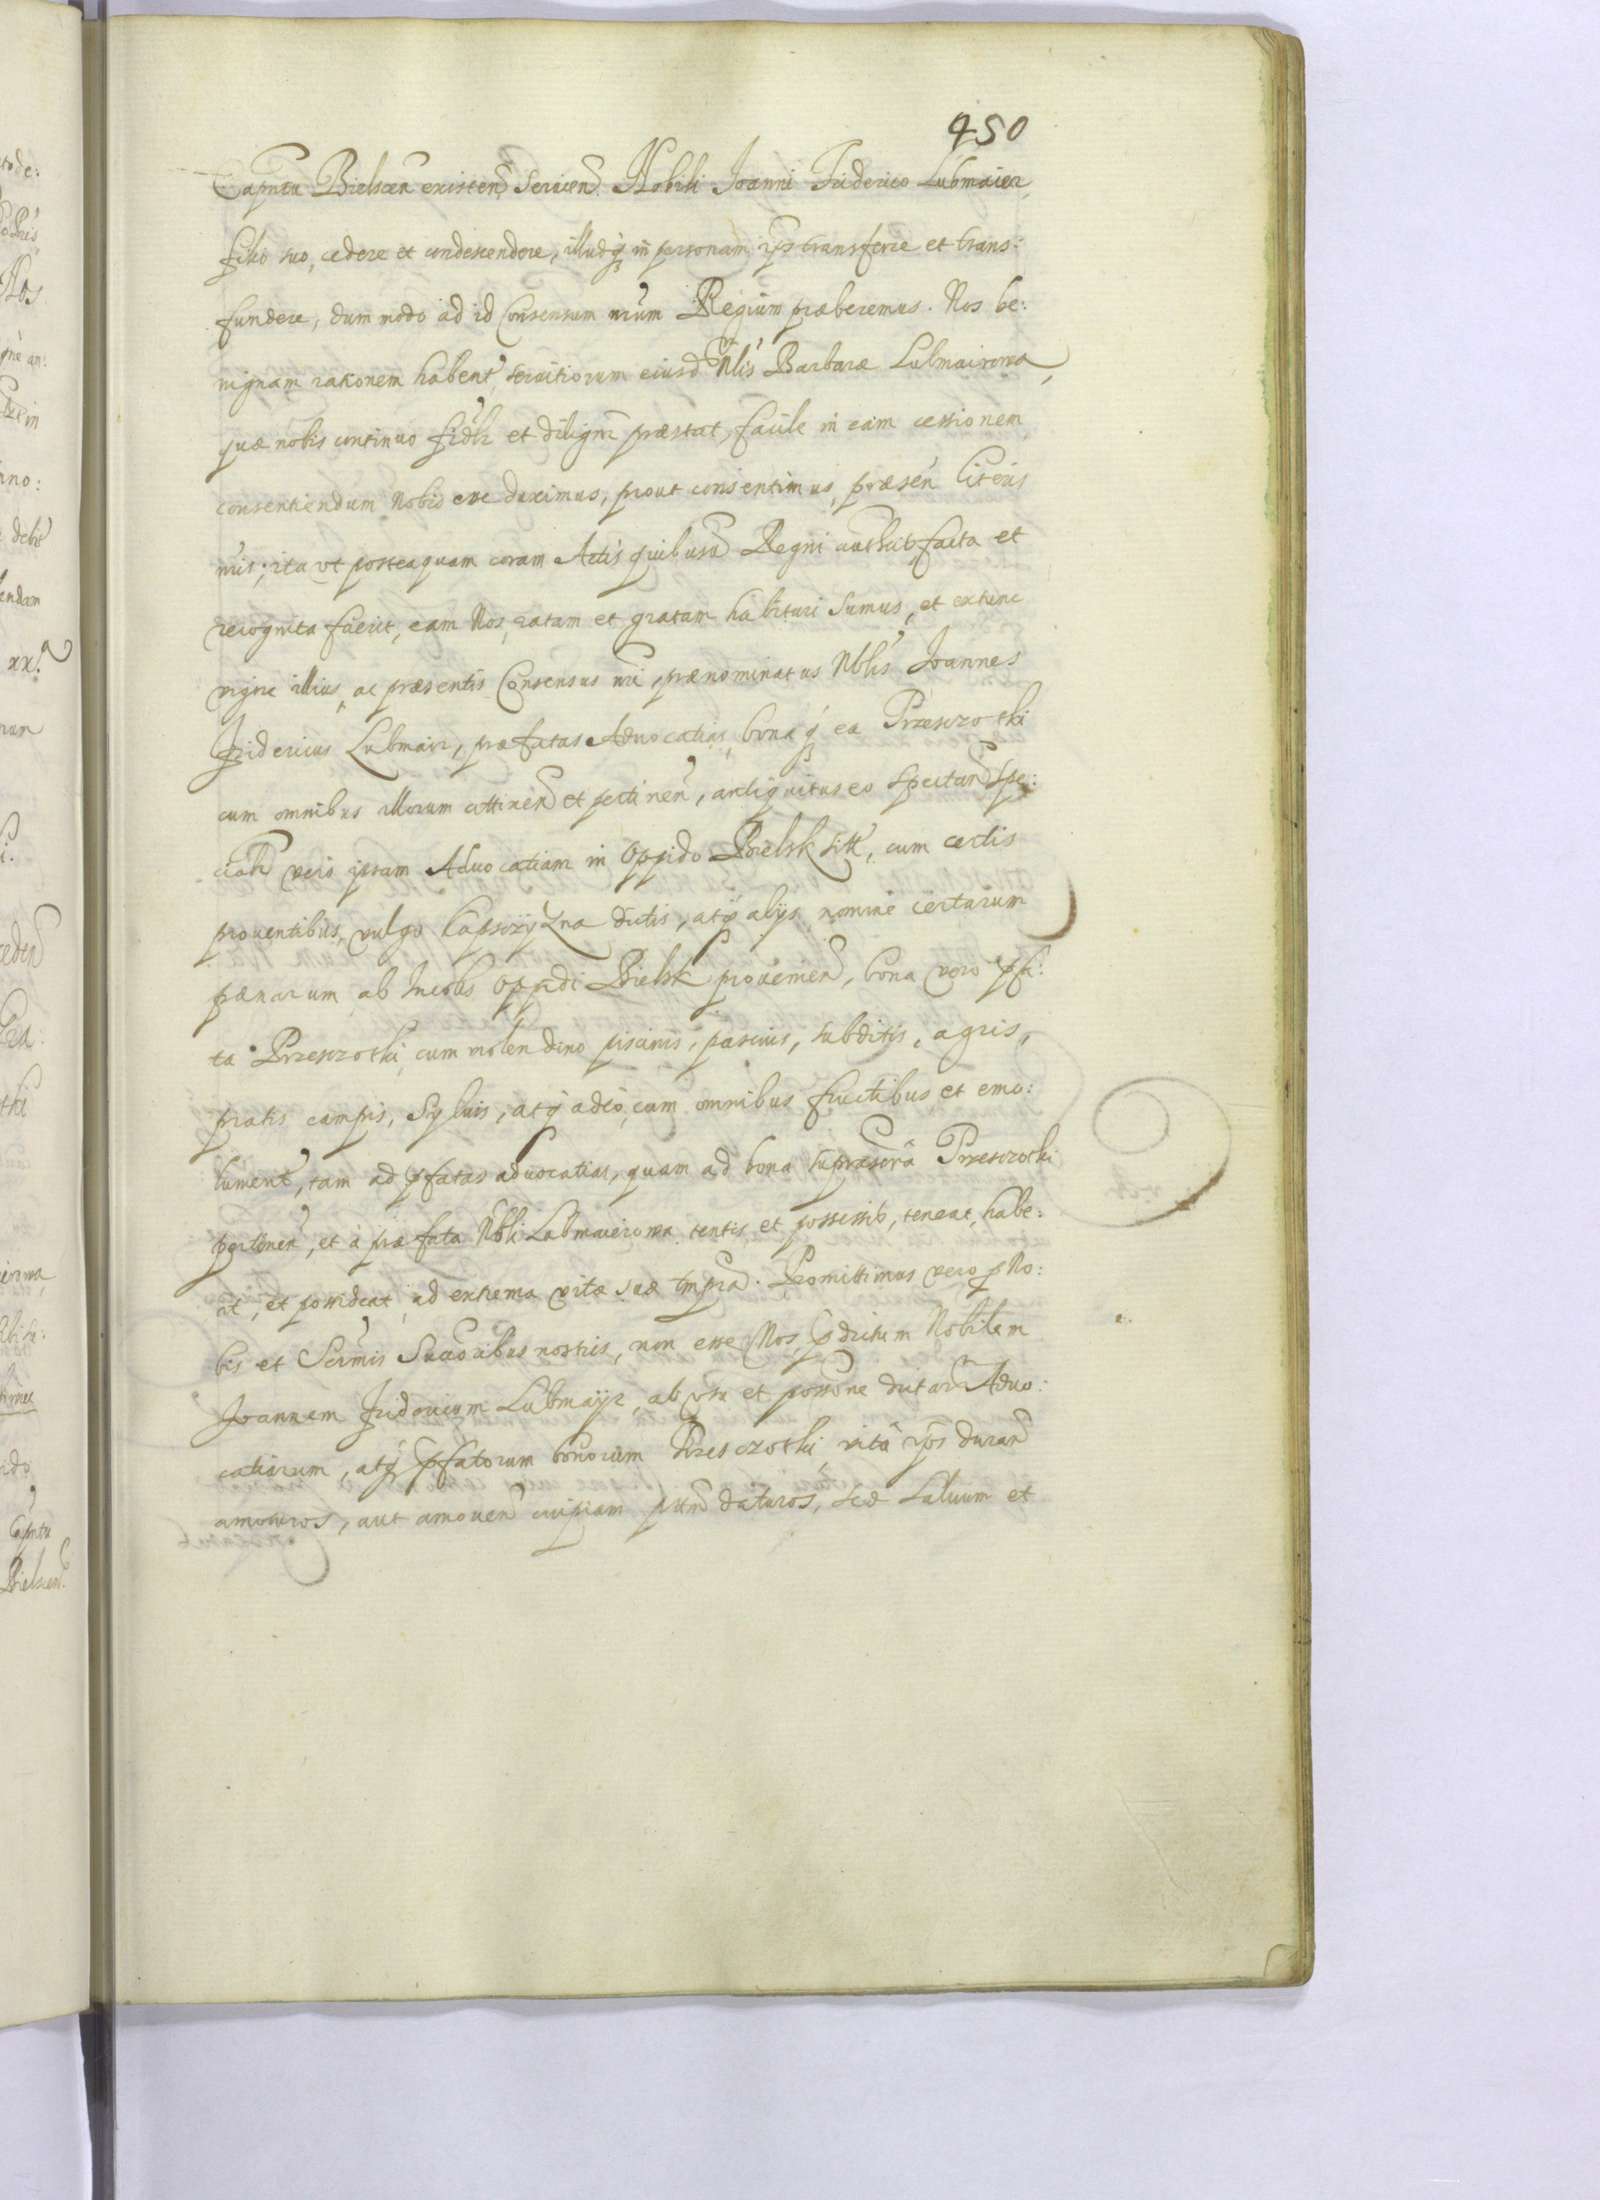 450
Capntu Bielscen existen Servien Nobili Joanni Friderico Lubmaier
filio suo, cedere et condescendere, illudq in personam ips transferre et trans:
fundere, dum modo ad id Consensum nrum Regium præberemus. Nos be:
nignam rationem habent servitiorum eiusd Nlis Barbaræ Lubmairowa,
quæ nobis continuo fidlr et diligntr præstat, facile in eam cessionem
consentiendum Nobis esse duximus, prout consentimus præsen Literis
nris; ita vt posteaquam coram Actis quibusuis Regni authen facta et
recognita fuerit, eam Nos, ratam et gratam habituri sumus, et extunc
vigore illius, ac præsentis Consensus nri, prænominatus Nblis Joannes
Fridericus Lubmair, præfatas Aduocatias, bonaq ea Przesczotki
cum omnibus illorum attinen et pertinen, antiquitus eo spectan, spe:
cialr vero ipsam Aduocatiam in Oppido Bielsk sitt, cum certis
prouentibus, vulgo Kapsczyzna dictis, atq alijs nomine certarum
pænarum ab Incolis Oppidi Bielsk prouenien, bona vero pfa:
ta Przesczotki cum molendino piscinis, pascuis, subditis, agris,
pratis campis, Syluis, atq adeo, cum omnibus fructibus et emo:
lument, tam ad pfatas aduocatias, quam ad bona suprascra Przesczotki
pertinen, et à præfata Nbli Lubmaierowa tentis et possessis, teneat, habe:
at, et possideat, ad extrema vitæ suæ tmpra. Promittimus vero p No:
bis et Sermis Succoribus nostris, non esse Nos, pdictum Nobilem
Joannem Fridericum Lubmayr, ab vsu et possone dictarum Aduo:
catiarum, atq pfatorum bonorum Przesczotki, vita ips duran
amoturos, aut amouen cuipiam pttem daturos, sed saluum et